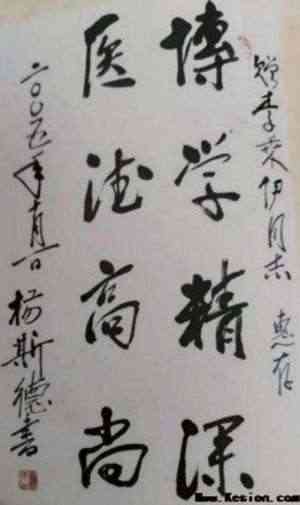 赠李伊同志 惠存
博学精深
医德高尚
二〇〇五年十月一日 杨斯德书
Www.Kesion.com